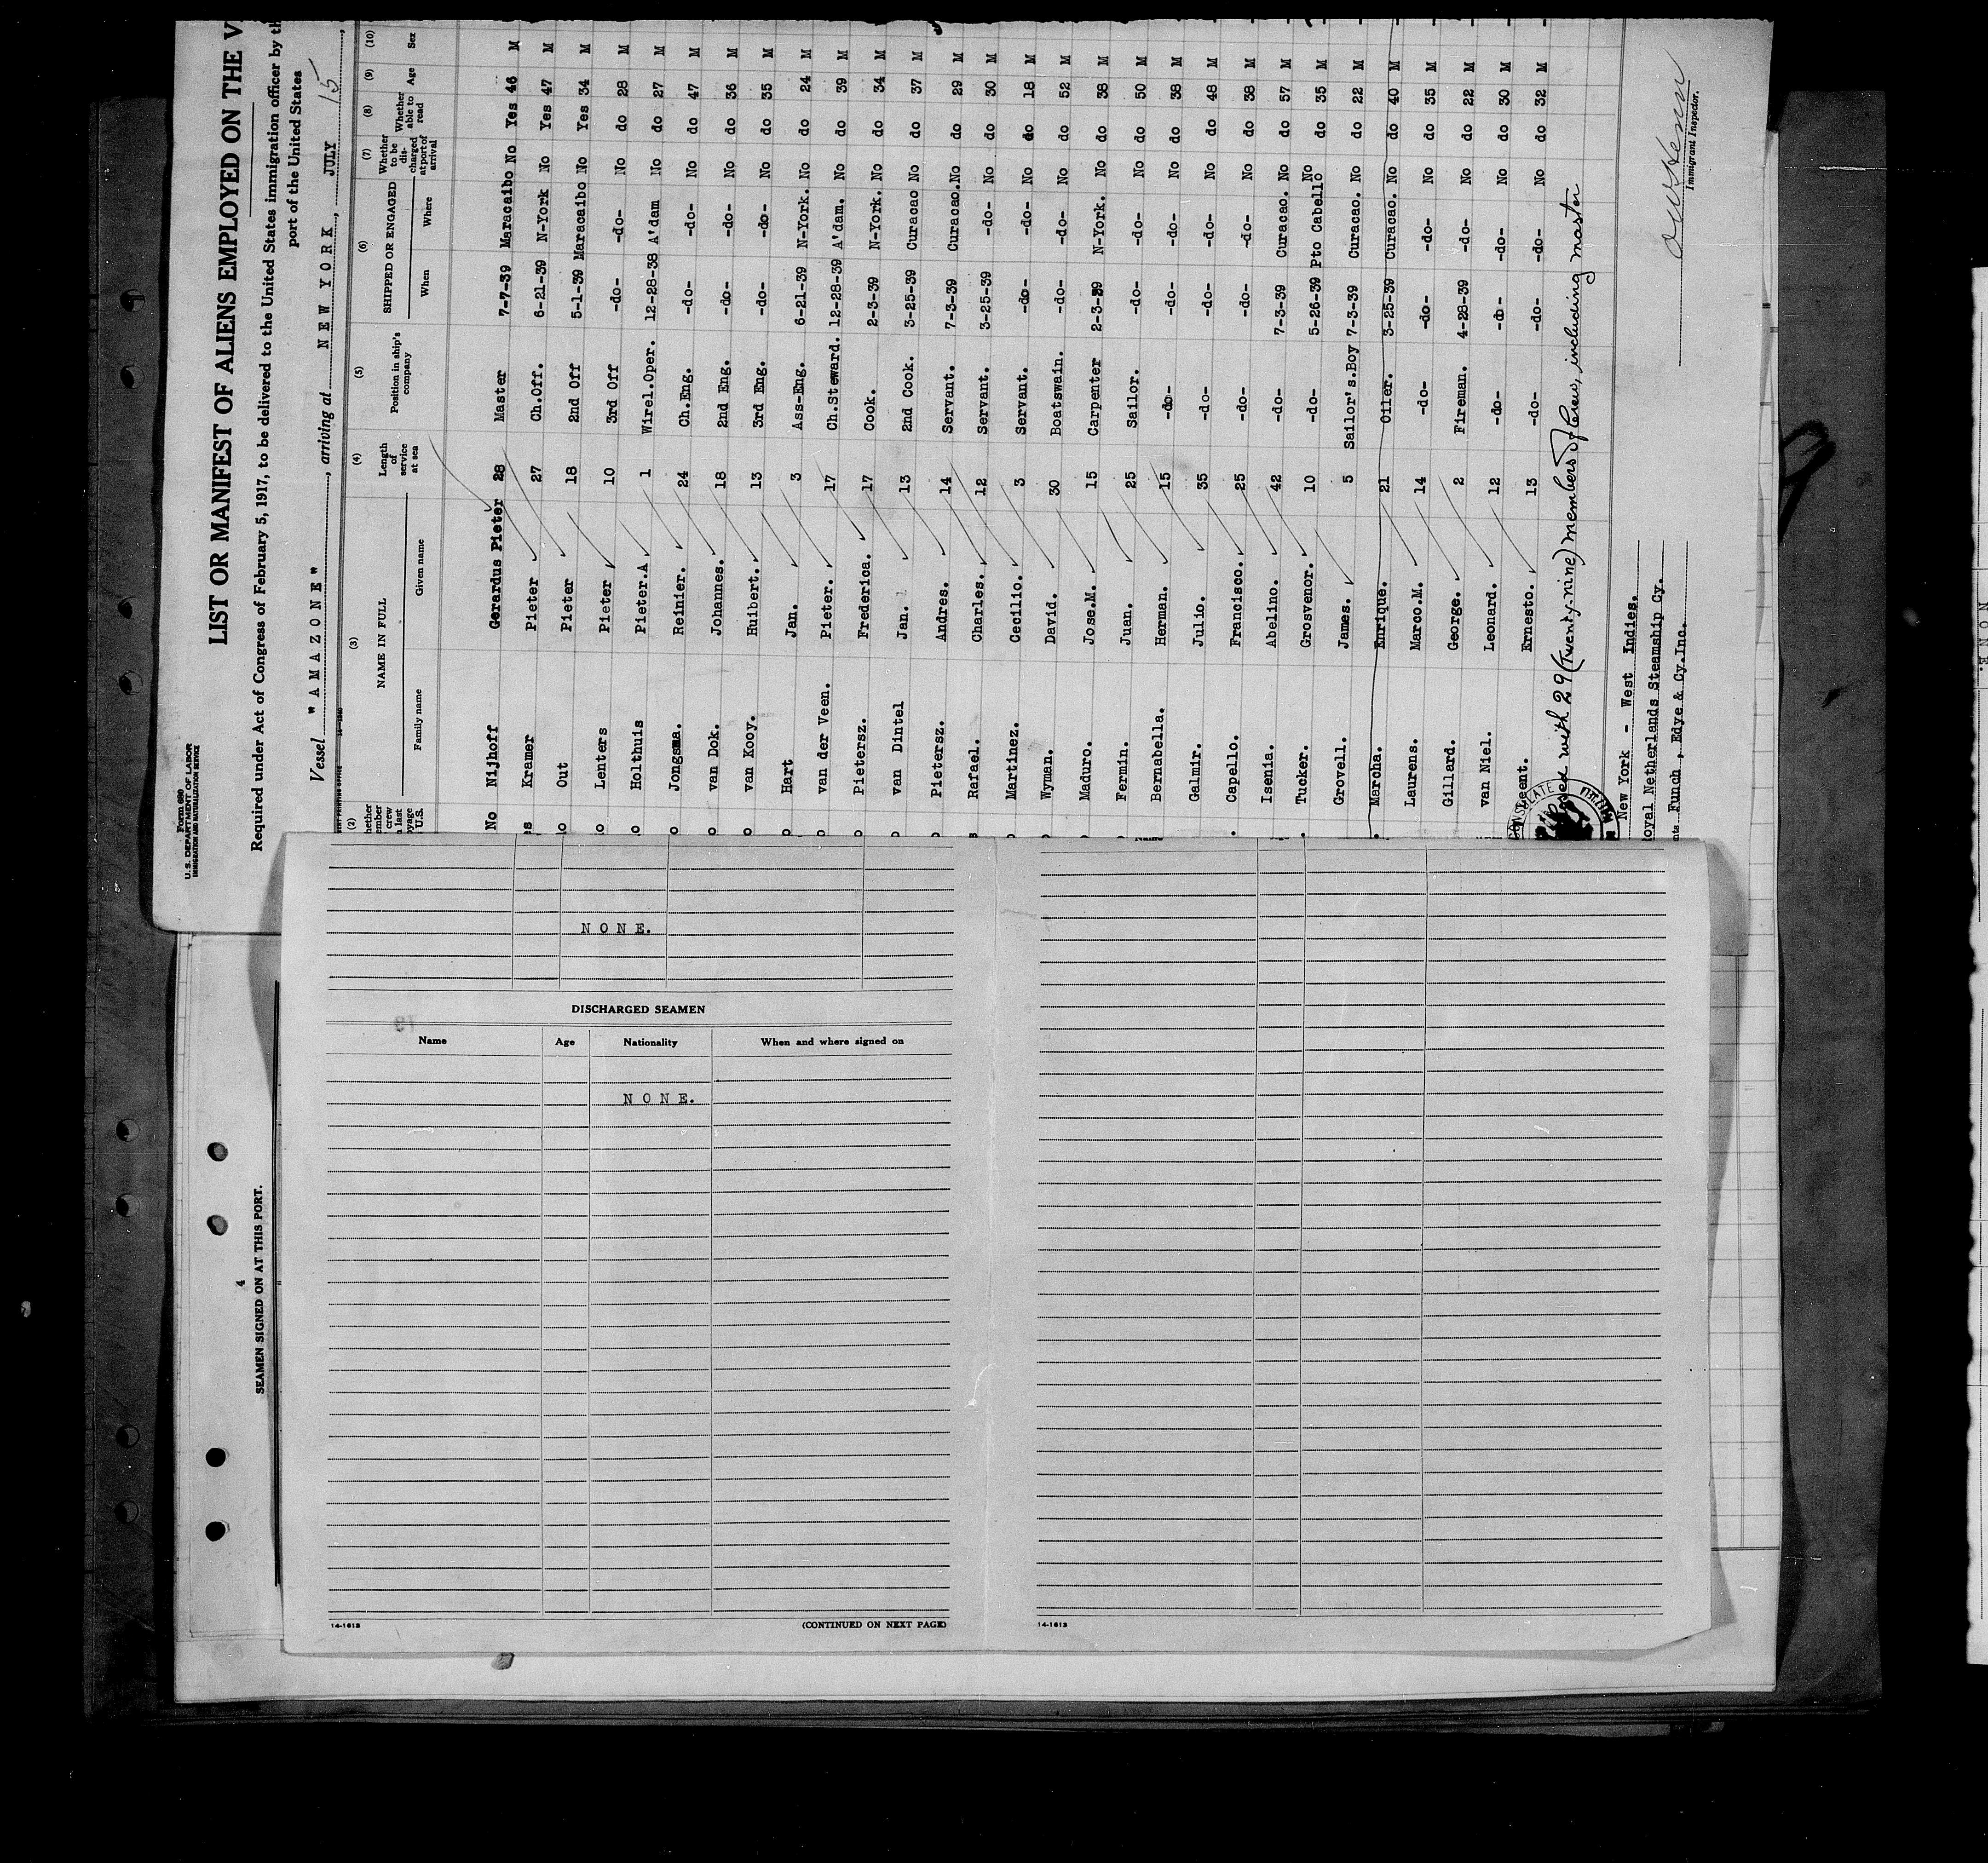 Form 680
U. S. DEPARTMENT OF LABOR
IMMIGRATION AND NATURALIZATION SERVICE
LIST OR MANIFEST OF ALIENS EMPLOYED ON THE V
Required under Act of Congress of February 5, 1917, to be delivered to the United States immigration officer by th
port of the United States
Vessel "AMAZONE", arriving at NEW YORK, JULY 15,
(2) (3) (4) (5) (6) (7) (8) (9) (10)
hether ember crew n last oyage U.S. NAME IN FULL Family name Given name Length of service at sea Position in ship's company SHIPPED OR ENGAGED When Where Whether to be discharged at port of arrival Whether able to read Age Sex
No Nijhoff Gerardus Pieter 28 Master 7-7-39 Maracaibo No Yes 46 M
s Kramer Pieter 27 Ch.Off. 6-21-39 N-York No Yes 47 M
o Out Pieter 18 2nd Off 5-1-39 Maracaibo No Yes 34 M
o Lenters Pieter 10 3rd Off -do- -do- No do 28 M
o Holthuis Pieter.A 1 Wirel.Oper. 12-28-38 A'dam No do 27 M
o Jongsma. Reinier. 24 Ch.Eng. -do- -do- No do 47 M
o van Dok. Johannes. 18 2nd Eng. -do- -do- No do 36 M
o van Kooy. Huibert. 13 3rd Eng. -do- -do- No do 35 M
o Hart Jan. 3 Ass-Eng. 6-21-39 N-York. No do 24 M
o van der Veen. Pieter. 17 Ch.Steward. 12-28-39 A'dam. No do 39 M
o Pietersz. Frederica. 17 Cook. 2-3-39 N-York. No do 34 M
o van Dintel Jan. 13 2nd Cook. 3-25-39 Curacao No do 37 M
o Pietersz. Andres. 14 Servant. 7-3-39 Curacao. No do 29 M
s Rafael. Charles. 12 Servant. 3-25-39 -do- No do 30 M
o Martinez. Cecilio. 3 Servant. -do- -do- No do 18 M
Wyman. David. 30 Boatswain. -do- -do- No do 52 M
Maduro. Jose.M. 15 Carpenter 2-3-39 N-York. No do 38 M
Fermin. Juan. 25 Sailor. -do- -do- No do 50 M
Bernabella. Herman. 15 -do- -do- -do- No do 38 M
Galmir. Julio. 35 -do- -do- -do- No do 48 M
Capello. Francisco. 25 -do- -do- -do- No do 38 M
Isenia. Abelino. 42 -do- 7-3-39 Curacao. No do 57 M
Tucker. Grosvenor. 10 -do- 5-26-39 Pto Cabello No do 35 M
Grovell. James. 5 Sailor's.Boy 7-3-39 Curacao. No do 22 M
Marcha. Enrique. 21 Oiler. 3-25-39 Curacao. No do 40 M
Laurens. Marco.M. 14 -do- -do- -do- No do 35 M
Gillard. George. 2 Fireman. 4-28-39 -do- No do 22 M
van Niel. Leonard. 12 -do- -do- -do- No do 30 M
Leent. Ernesto. 13 -do- -do- -do- No do 32 M
with 29 (Twenty-nine) members of crew, including master
New York - West Indies.
oyal Netherlands Steamship Cy.
nts Funch, Edye & Cy.Inc.
Immigrant Inspector.
4
SEAMEN SIGNED ON AT THIS PORT.
NONE.
DISCHARGED SEAMEN
Name Age Nationality When and where signed on
NONE.
14-1613 (CONTINUED ON NEXT PAGE)
14-1613
NONE.